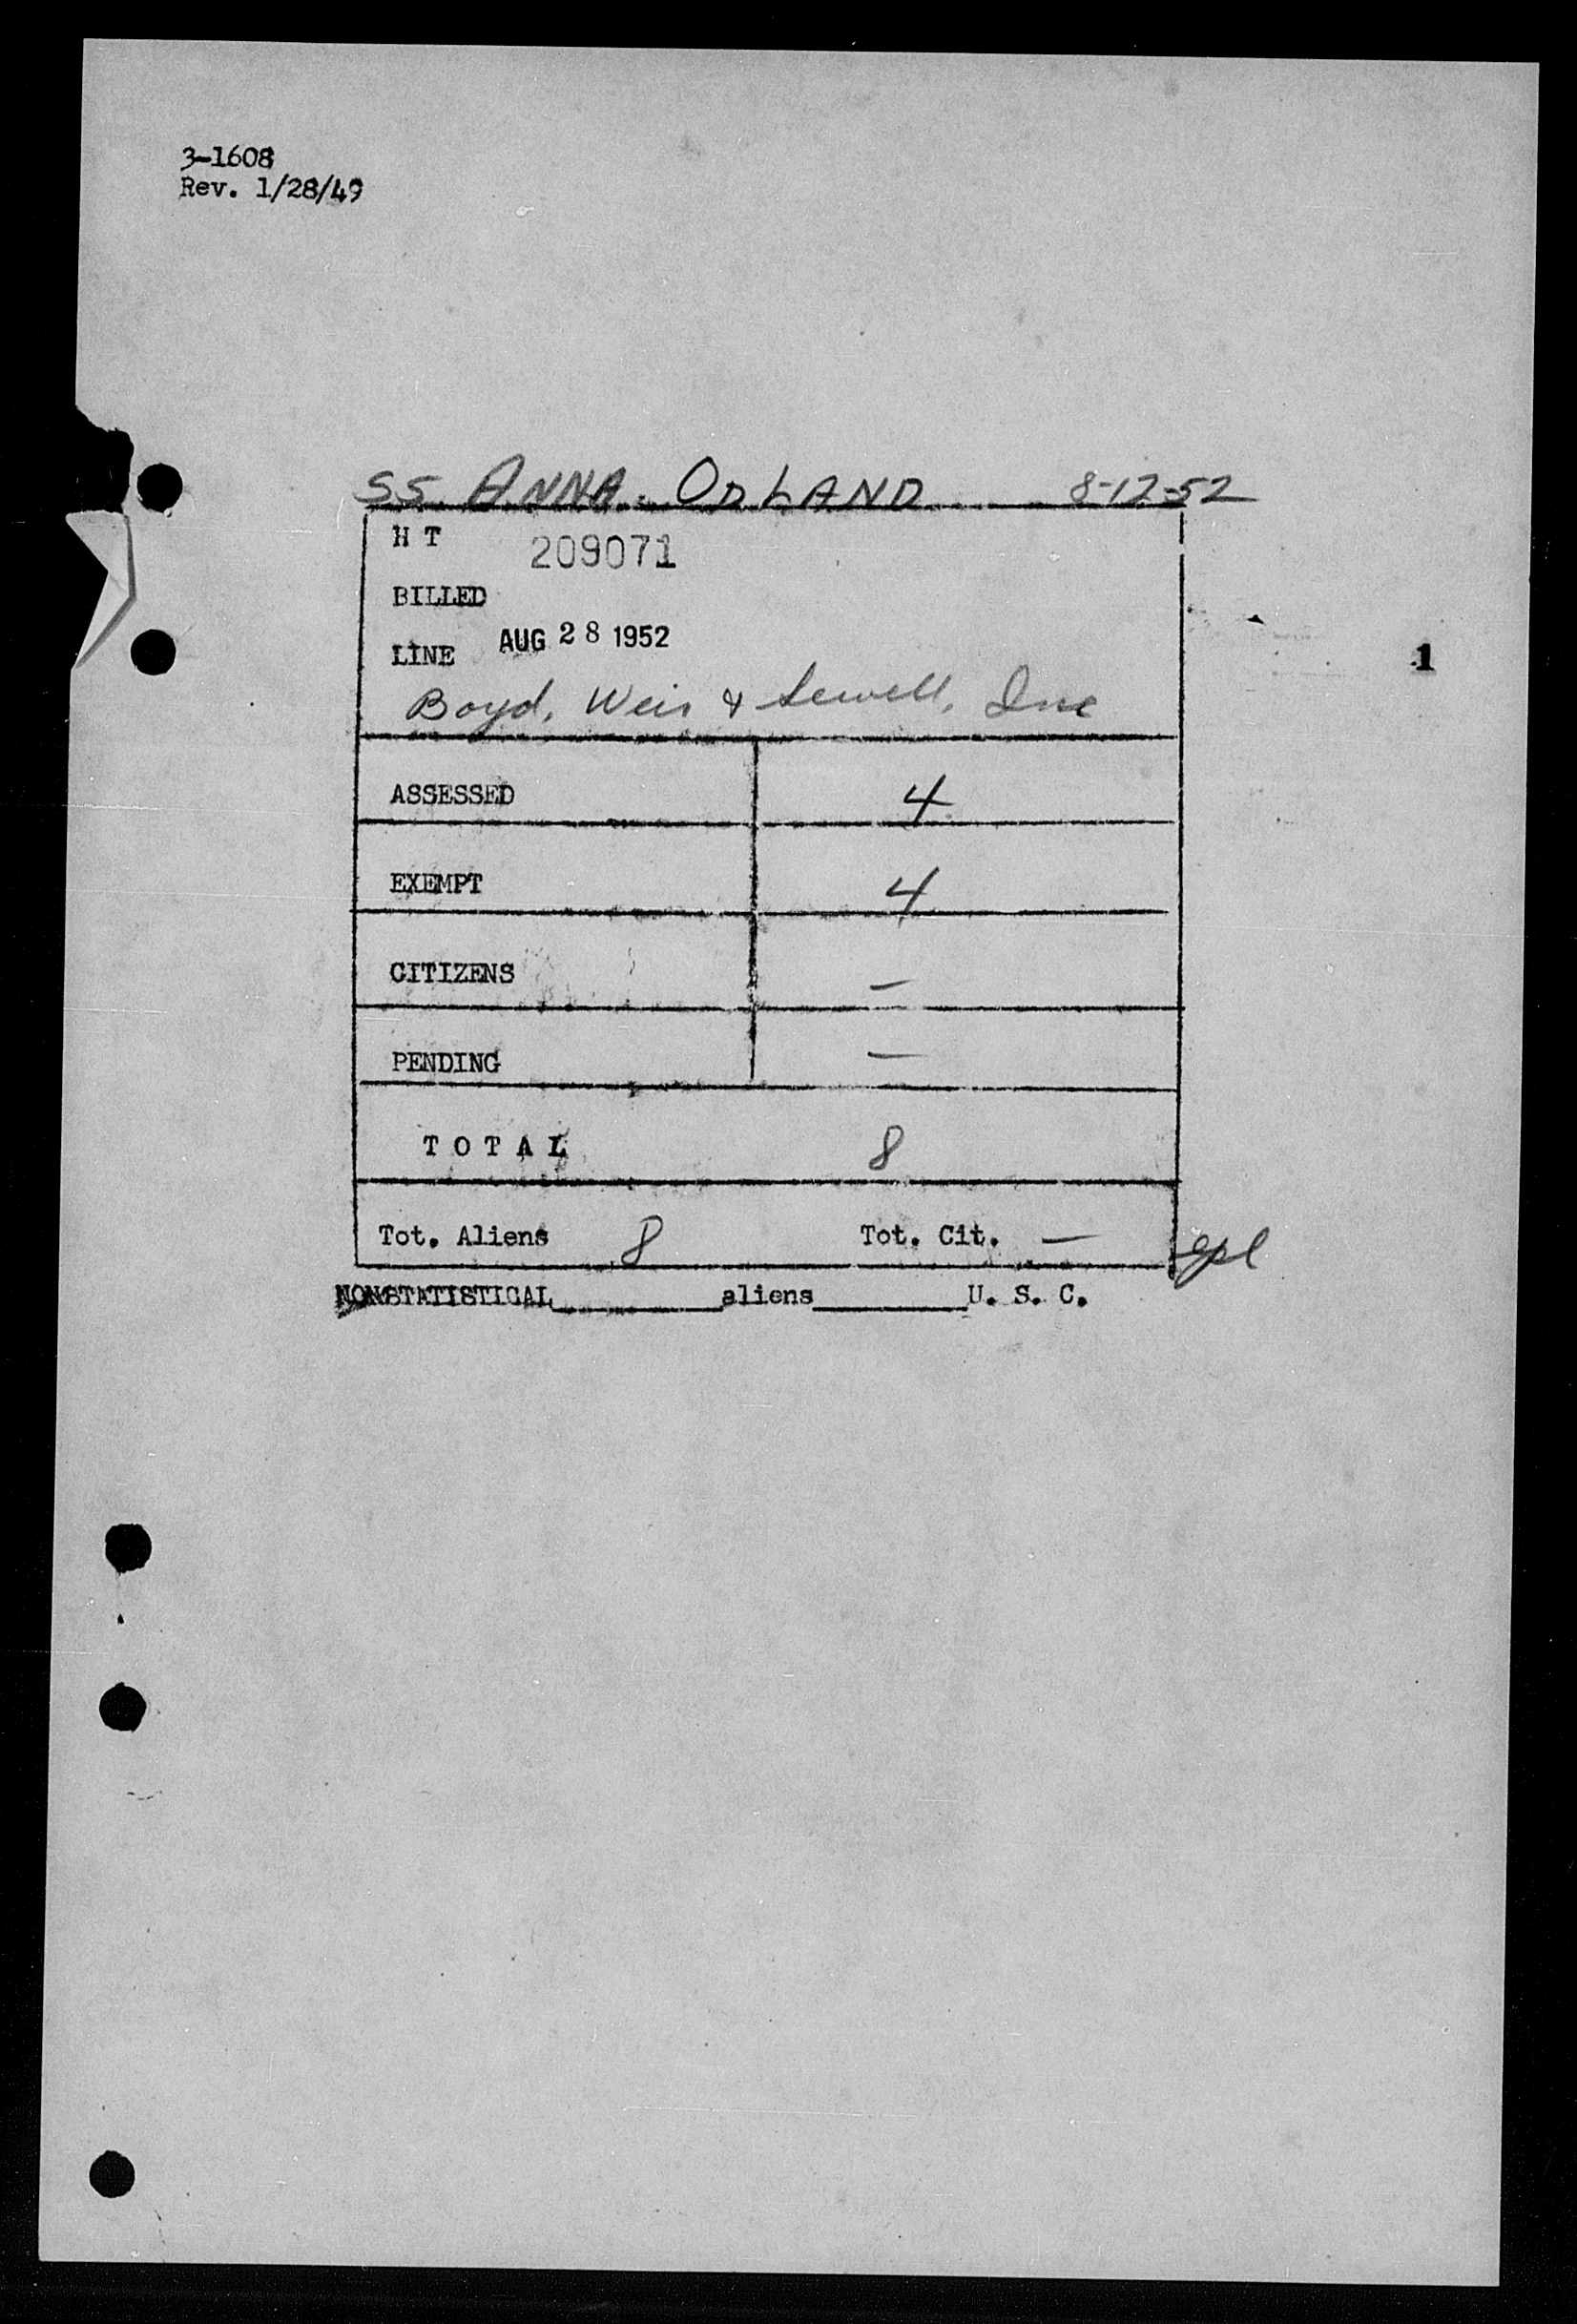 3-1608
Rev. 1/28/49
SS. ANNA ODLAND 8-12-52
H T 209071
BILLED
LINE AUG 28 1952
Boyd, Weir & Sewell, Inc
1
ASSESSED 4
EXEMPT 4
CITIZENS —
PENDING —
T O T A L 8
Tot. Aliens 8 Tot. Cit. —
NONSTATISTICAL________aliens________U. S. C.